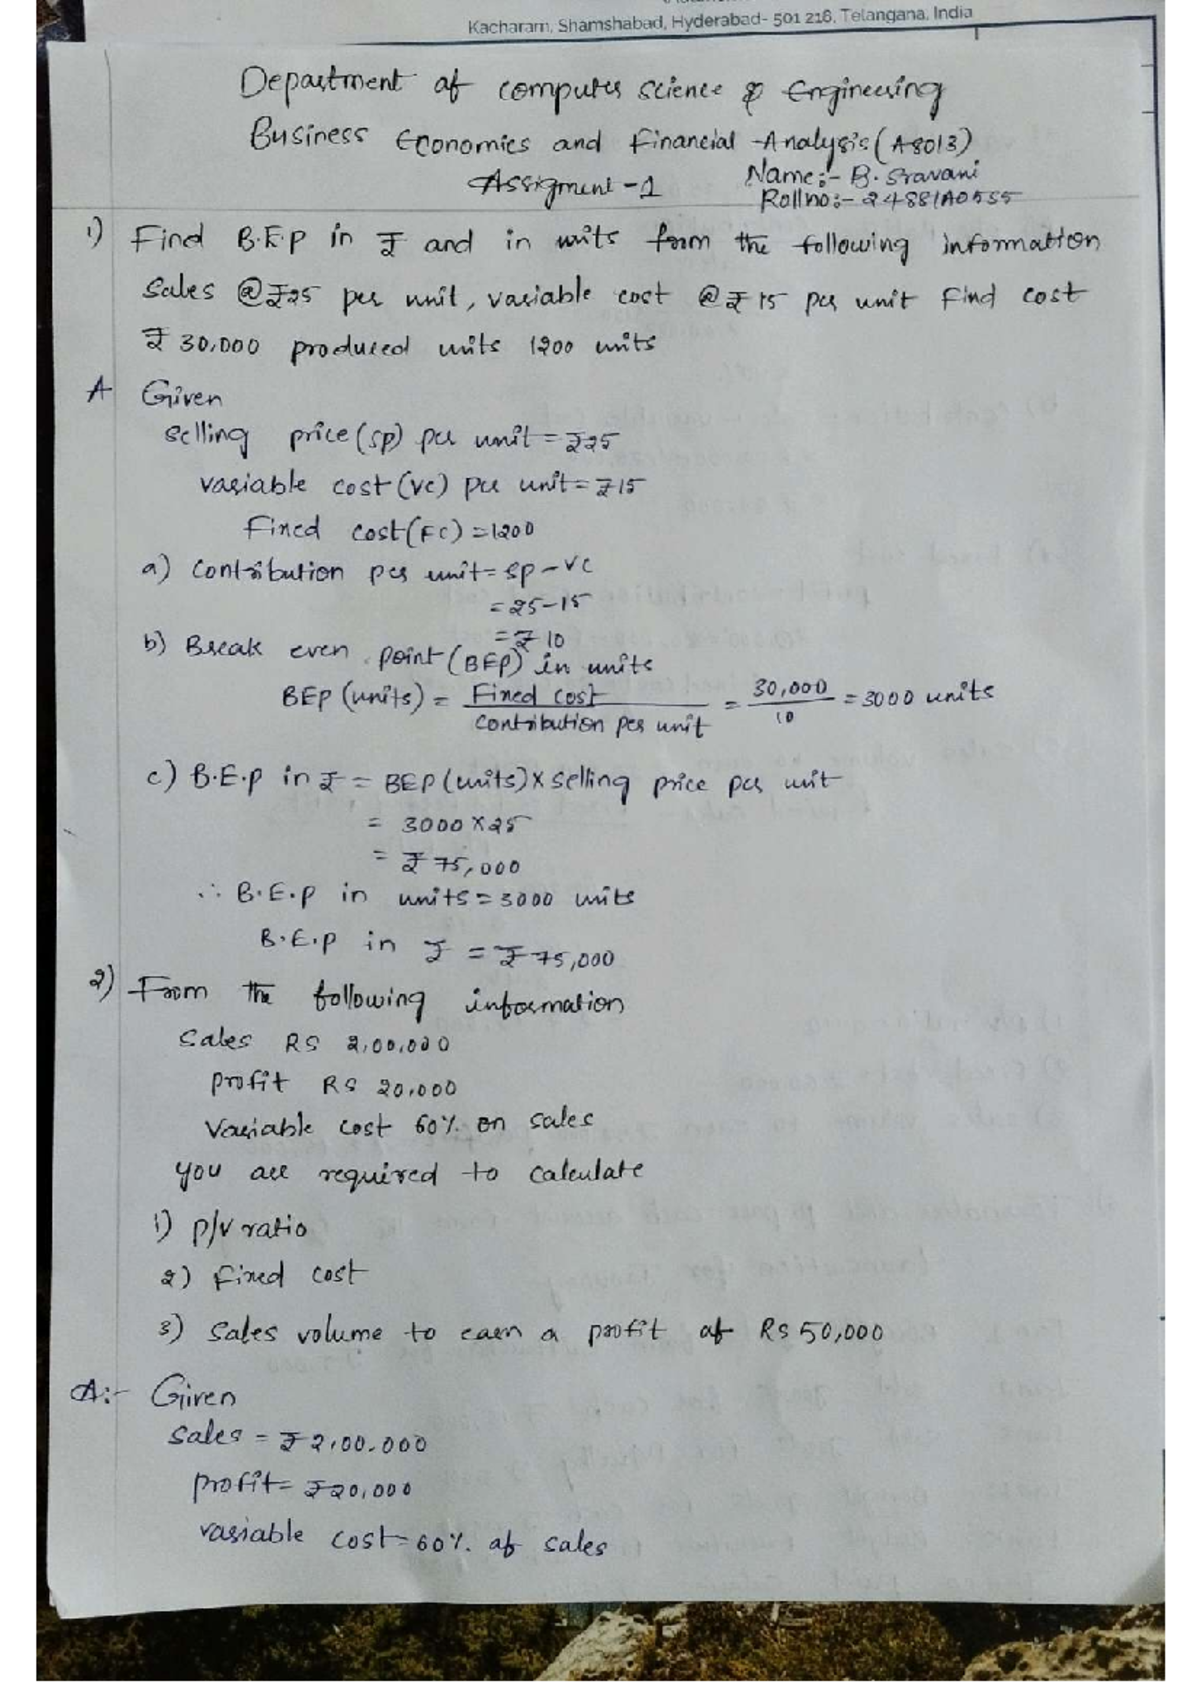 Kacharam, Shamshabad, Hyderabad- 501 218, Telangana, India
Department of computer science & Engineering
Business Economics and Financial Analysis (A8013)
Assigment-1
Name:- B. Sravani
Rollno:- 24881A0555
1) Find B.E.P in ₹ and in units from the following information
Sales @₹25 per unit, variable cost @₹15 per unit Find cost
₹30,000 produced units 1200 units
A Given
Selling price(SP) per unit = ₹25
variable cost(VC) per unit = ₹15
Fixed cost(FC) = 1200
a) Contribution per unit = SP-VC
= 25-15
= ₹10
b) Break even point (BEP) in units
BEP (units) = Fixed cost / Contribution per unit = 30,000 / 10 = 3000 units
c) B.E.P in ₹ = BEP (units) x selling price per unit
= 3000 x 25
= ₹75,000
∴ B.E.P in units = 3000 units
B.E.P in ₹ = ₹75,000
2) From the following information
Sales RS 2,00,000
profit RS 20,000
Variable cost 60% on sales
you are required to calculate
1) p/v ratio
2) Fixed cost
3) Sales volume to earn a profit of RS 50,000
A:- Given
Sales = ₹2,00,000
profit = ₹20,000
variable cost = 60% of sales